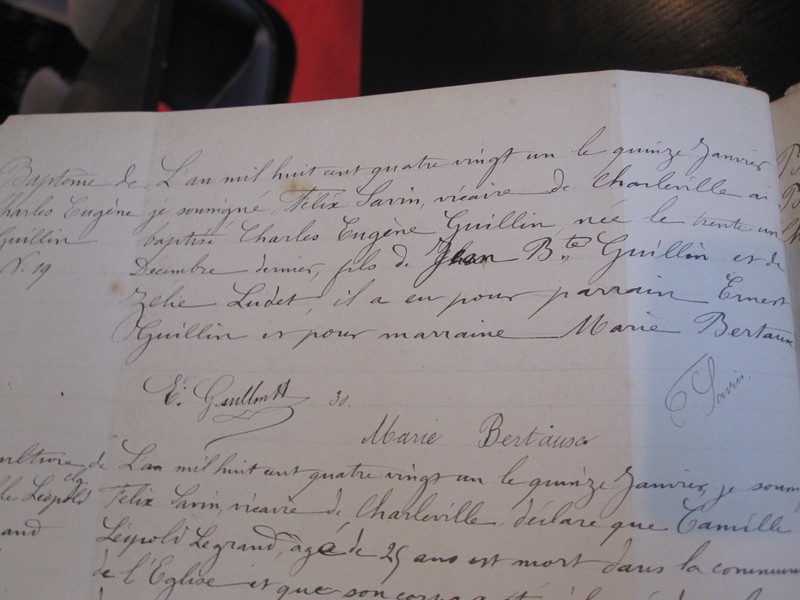 Baptême de
Charles Eugène
Guillin
N. 19
L'an mil huit cent quatre vingt un le quinze Janvier
je soumigné, Félix Savin, vicaire de Charleville ai
baptisé Charles Eugène Guillin, née le trente un
Décembre dernier, fils de Jean B.te Guillin et de
Zélie Ludet, il a eu pour parrain Ernest
Guillin et pour marraine Marie Bertaux
E. Guillin
F Savin
Marie Bertaux
de
Léopold
L'an mil huit cent quatre vingt un le quinze Janvier, je soum
Félix Savin, vicaire de Charleville déclare que Camille
Léopold Legrand, âgé de 25 ans est mort dans la commun
de l'Eglise et que son corps a été